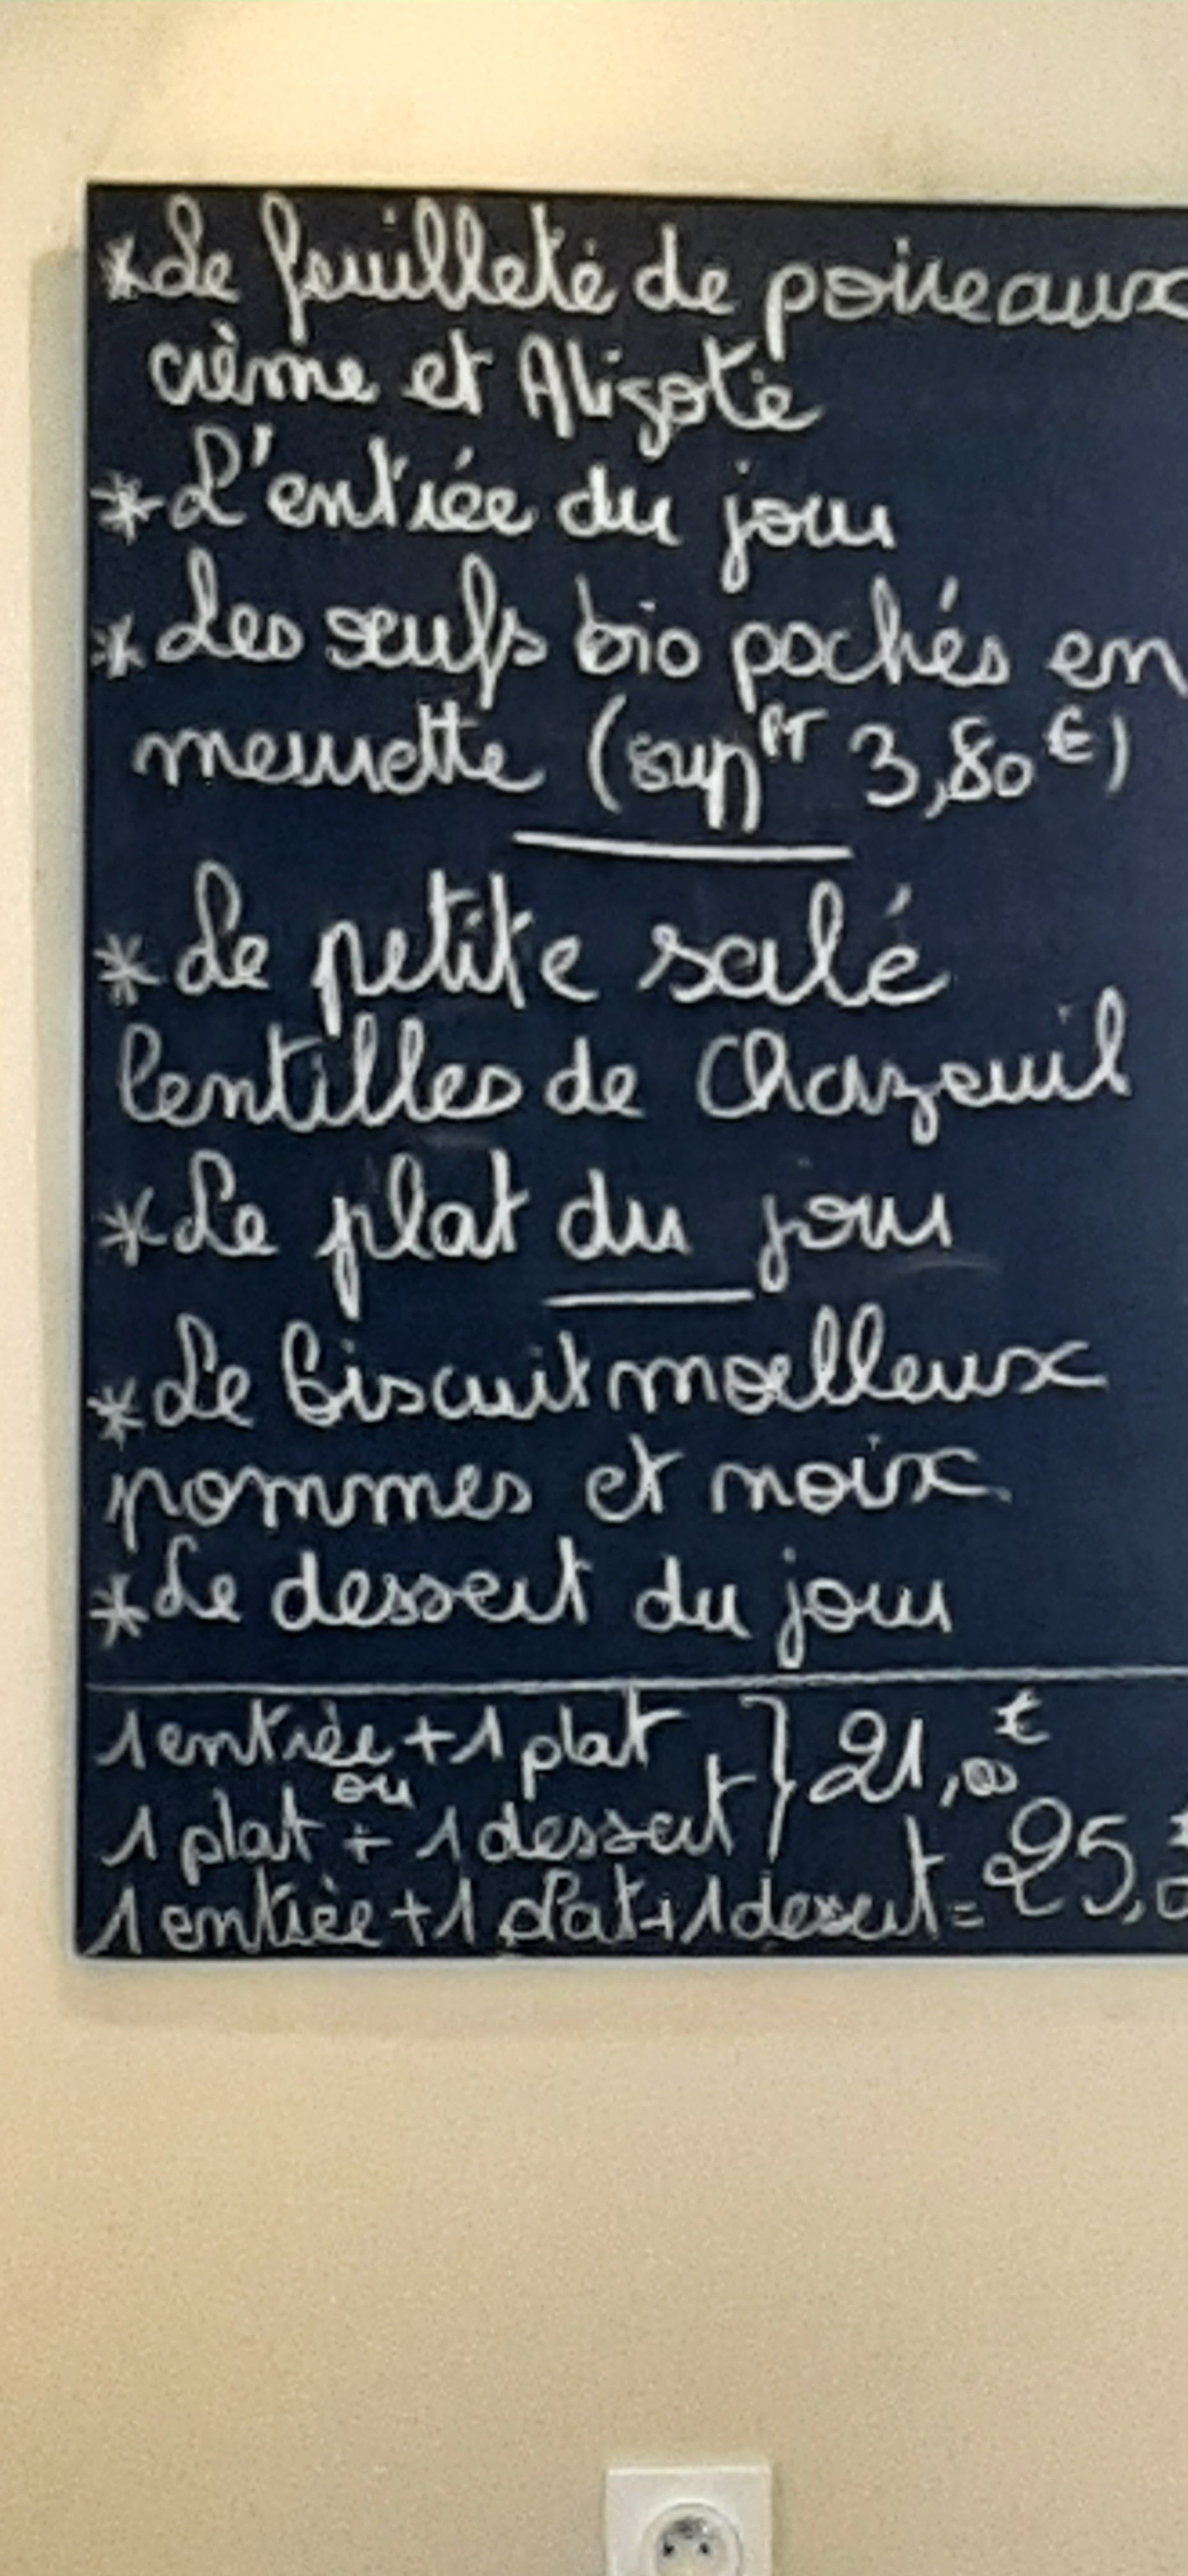 *Le feuilleté de poireaux
crème et Aligoté
*L'entrée du jour
*Les œufs bio pochés en
meurette (sup^pt 3,80€)
*Le petite salé
lentilles de Chazeuil
*Le plat du jour
*Le biscuit moelleux
pommes et noix
*Le dessert du jour
1 entrée + 1 plat } 21,00€
ou
1 plat + 1 dessert
1 entrée + 1 plat + 1 dessert = 25,